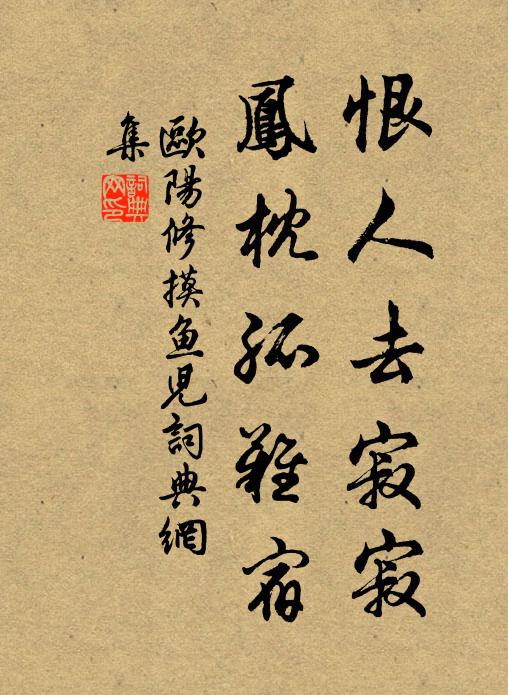 恨人去寂寂
鳳枕孤難宿
歐陽修摸魚兒詞典網
集
詞典網印